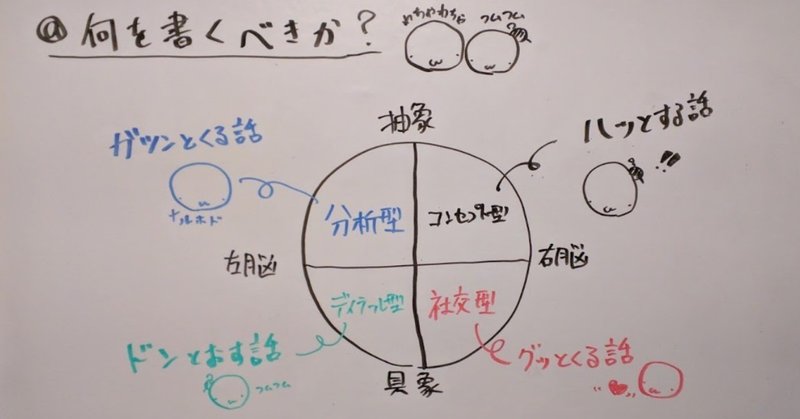 @ 何を書くべきか?
めちゃわちゃ
フムフム
抽象
ガツンとくる話
ハッとする話
!!
ナルホド
分析型
コンセプト型
左脳
右脳
ディテール型
社交型
ドンとおす話
グッとくる話
フムフム
具象